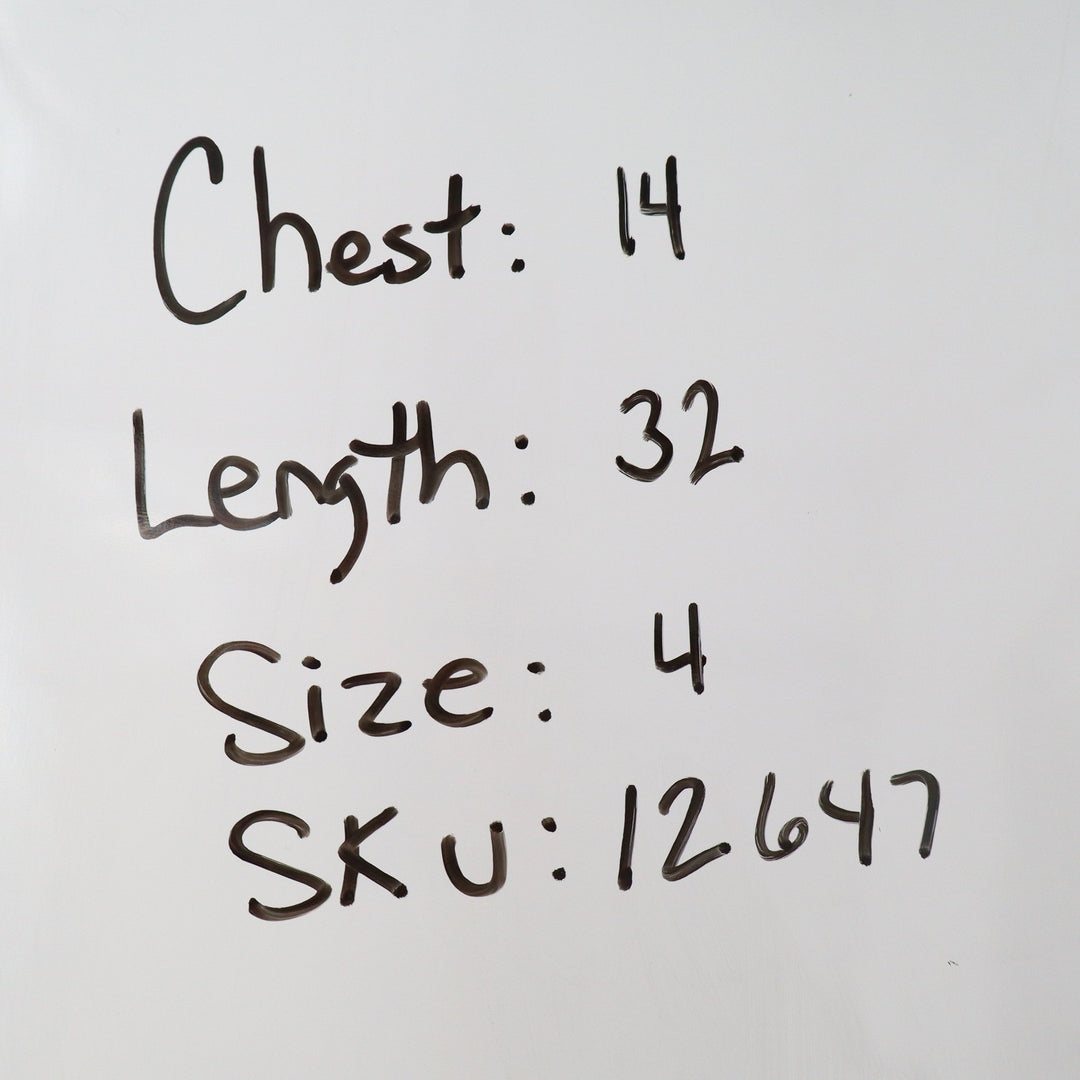 Chest: 14
Length: 32
Size: 4
SKU: 12647